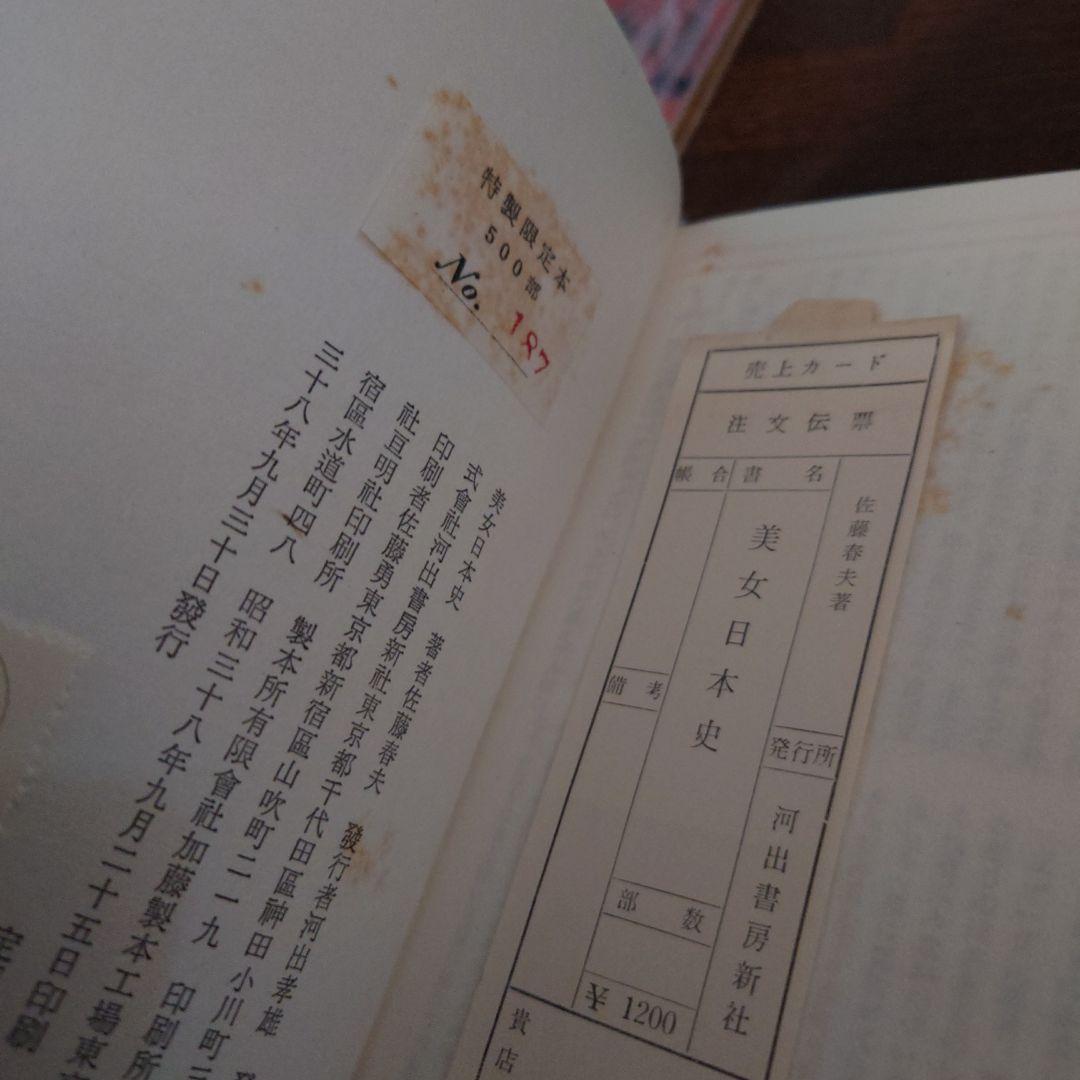 特製限定本
500部
No. 187
美女日本史 著者佐藤春夫 發行者河出孝雄
式會社河出書房新社東京都千代田區神田小川町三
印刷者佐藤勇東京都新宿區山吹町二一九 印刷所
社亘明社印刷所 製本所有限會社加藤製本工場東
宿區水道町四八 昭和三十八年九月二十五日印刷
三十八年九月三十日發行
売上カード
注文伝票
帳合
書名
佐藤春夫著
美女日本史
備考
発行所
河出書房新社
部数
¥1200
貴店